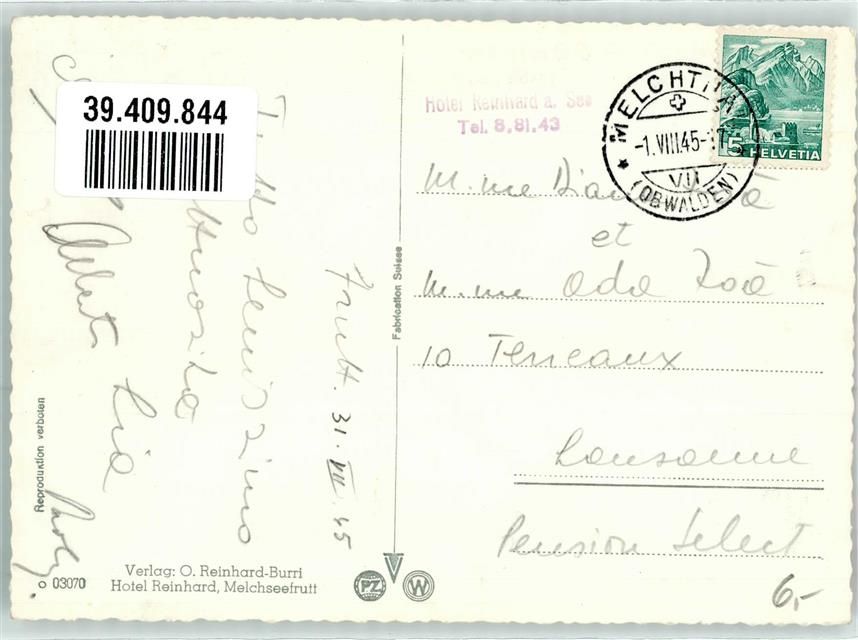 39.409.844
Frutt. 31. VII 45
Albert Lia
Reproduktion verboten
o 03070
Verlag: O. Reinhard-Burri
Hotel Reinhard, Melchseefrutt
Fabrication Suisse
PZ
W
Hotel Reinhard a. See
Tel. 8.81.43
MELCHTHAL
-1.VIII.45-
VII
(OBWALDEN)
5 HELVETIA
M.me
et
M.me Ada Zoà
10 Terreaux
Lausanne
Pension Select
6,-